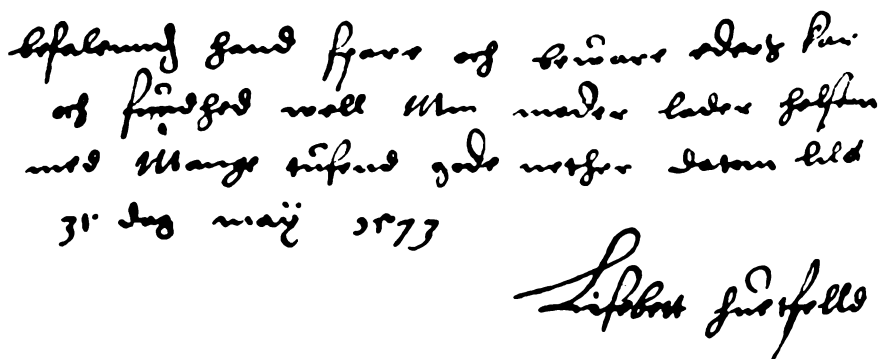 befalenndς hand spare och beware eders kar
och sundhed well Min moder lader helsen
med Mange tusend gode nether datom lild
31 dag maÿ 1573
Lisebett huitfelld